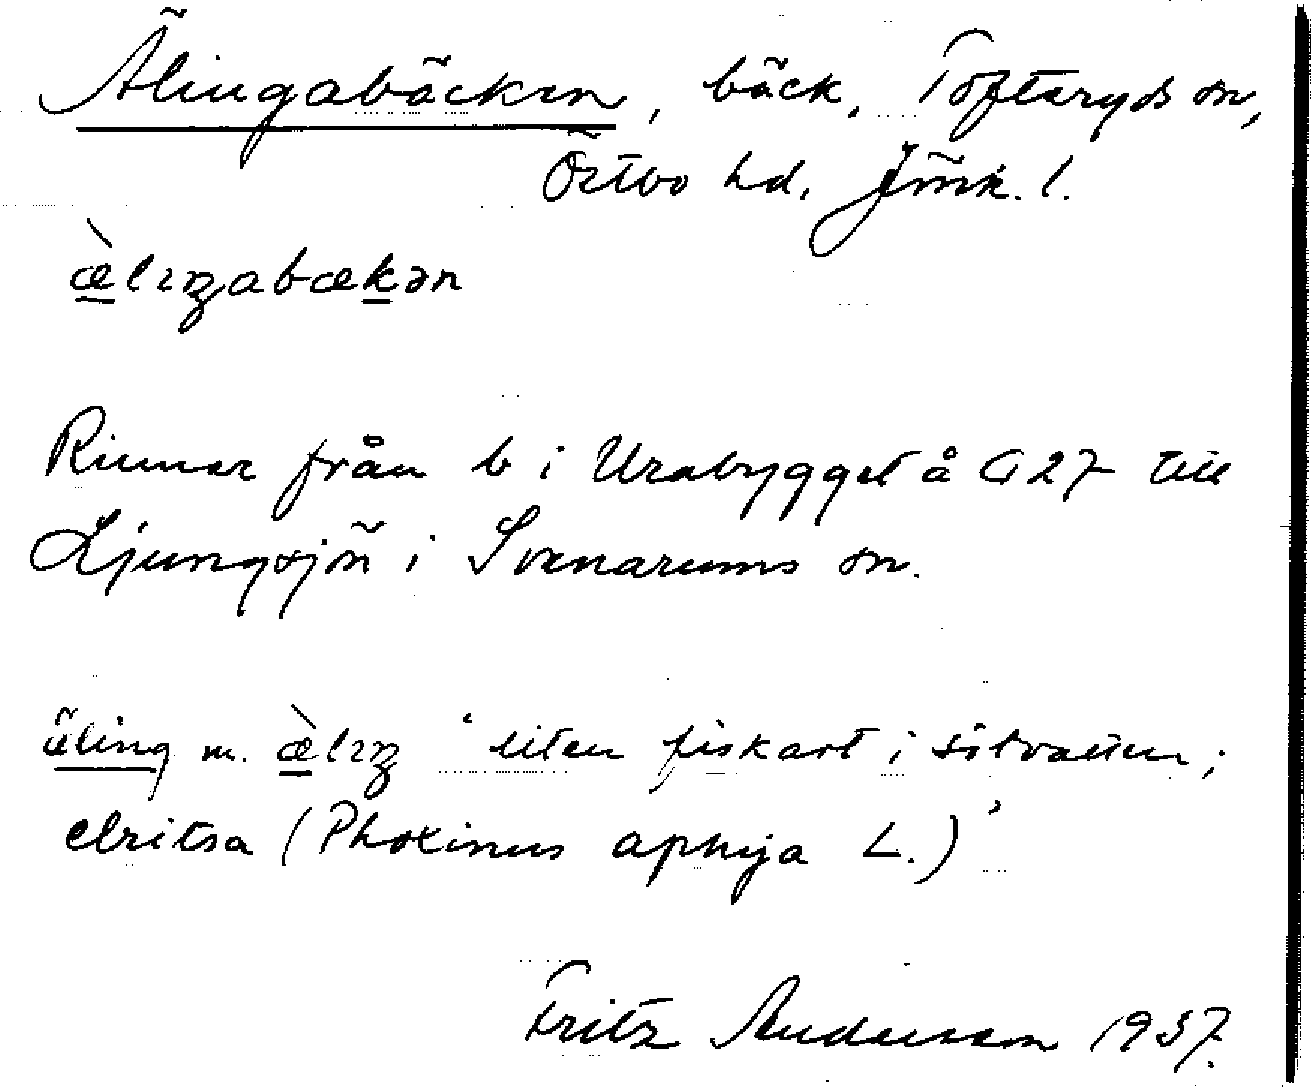 Älingabäcken, bäck, Tofteryds sn,
Östbo hd. Jönk. l.
æ̀lıŋabækən
Rinner från b i Urabygget å G27 till
Ljungsjön i Svenarums sn.
äling m. æ̀lıŋ 'liten fiskart i sötvatten;
elritsa (Phoxinus aphya L.)'
Fritz Andersson 1937.